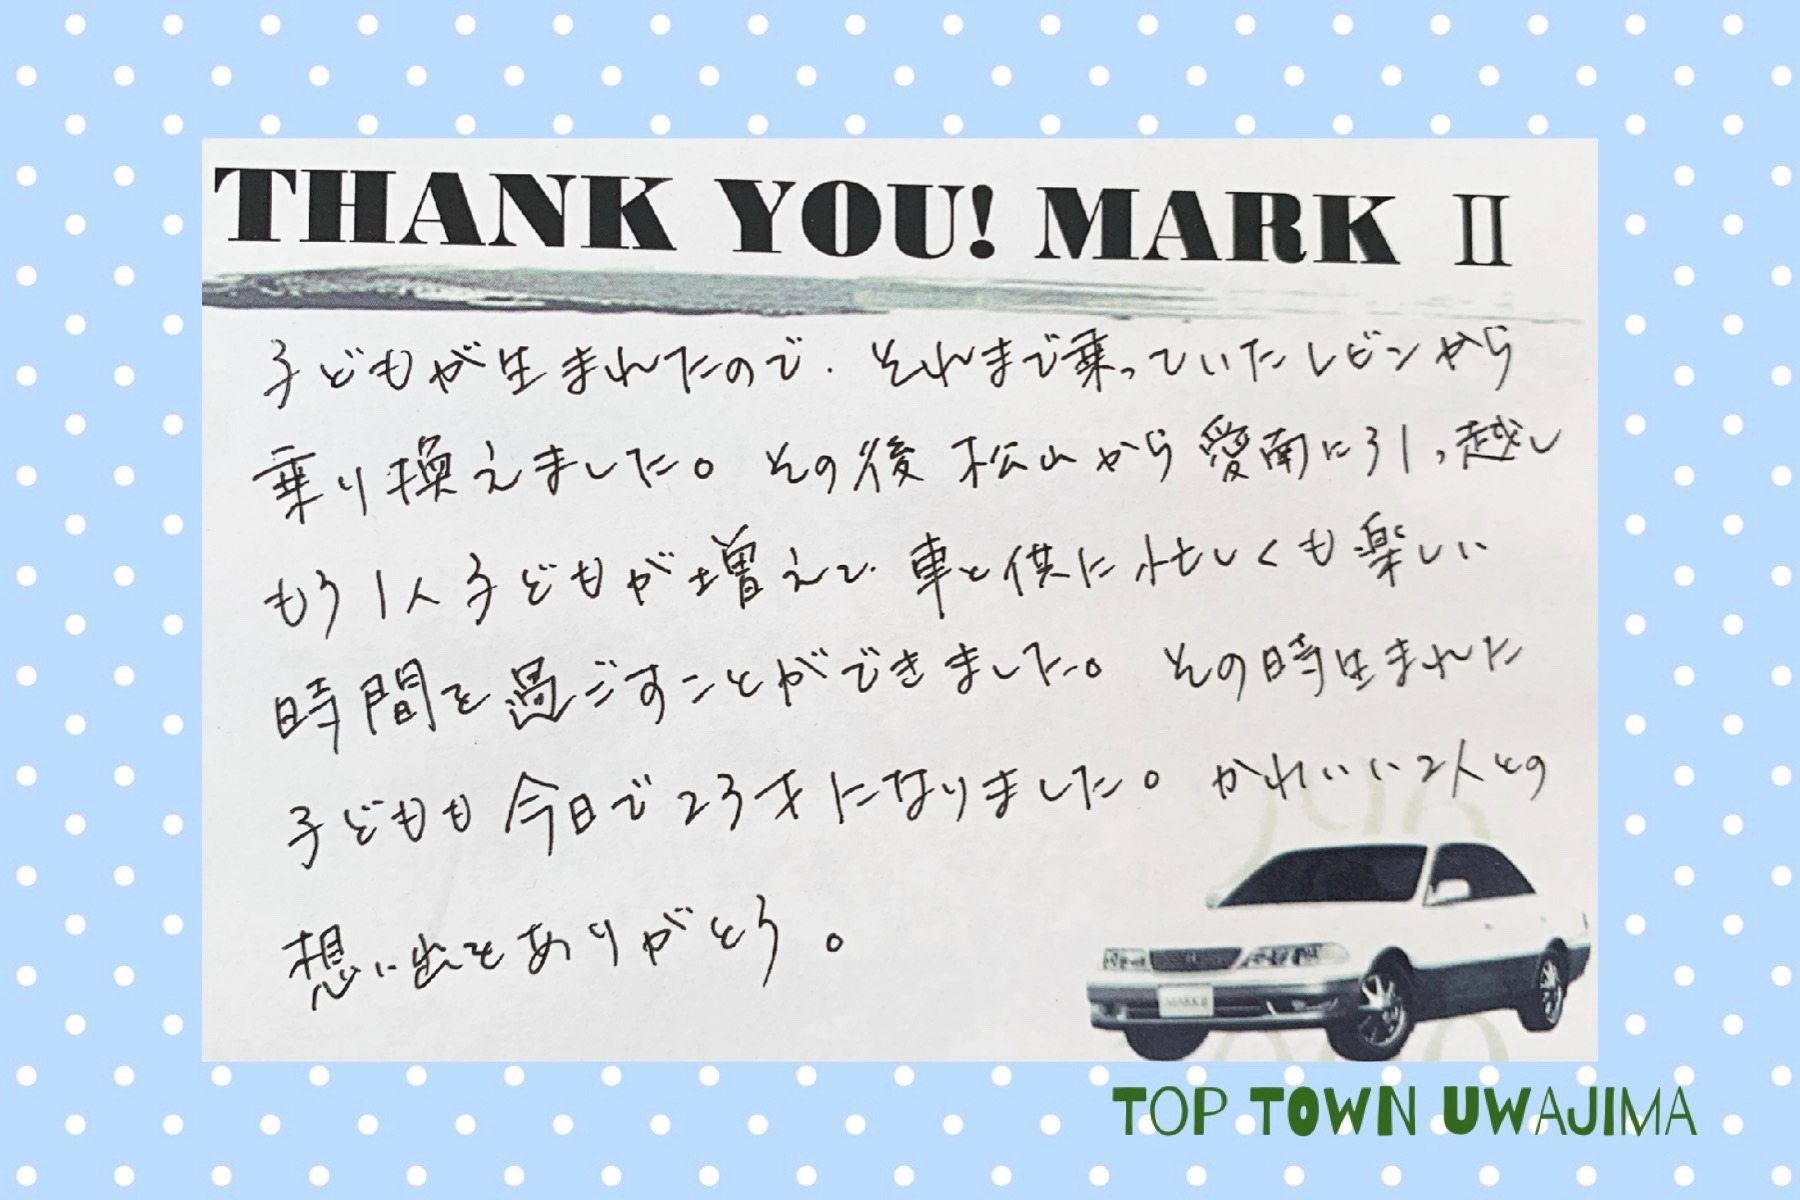 THANK YOU! MARK Ⅱ
子どもが生まれたので、それまで乗っていたレビンから
乗り換えました。その後 松山から愛南に引っ越し
もう1人子どもが増えて、車と供に忙しくも楽しい
時間を過ごすことができました。その時生まれた
子どもも今日で23才になりました。かわいい2人との
想い出をありがとう。
MARKⅡ
TOP TOWN UWAJIMA